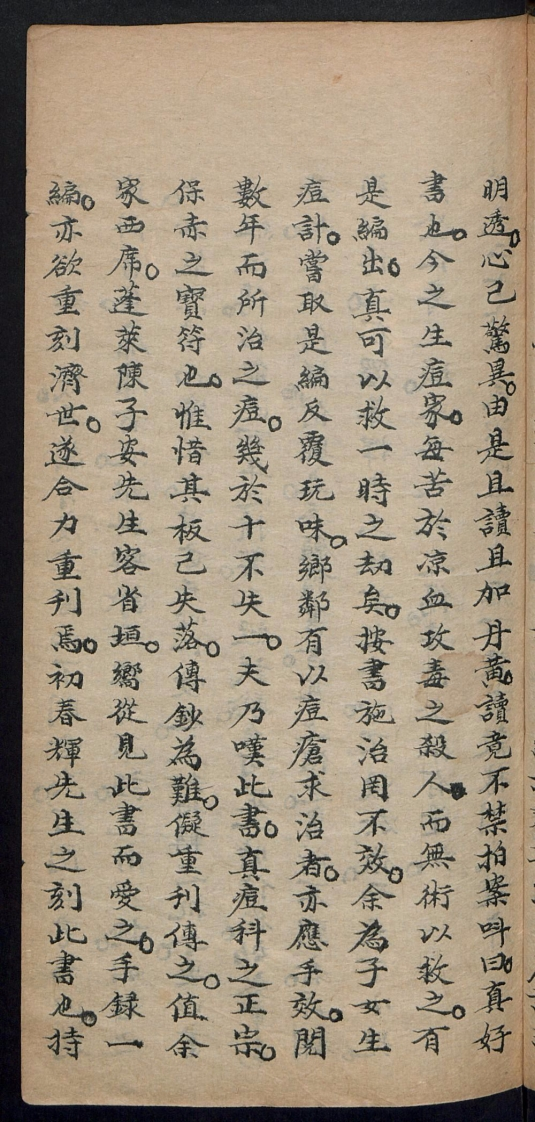 明透。心已驚異。由是且讀且加丹黃。讀竟不禁拍案呌曰。真好
書也。今之生痘家。每苦於凉血攻毒之殺人。而無術以救之。有
是編出。真可以救一時之劫矣。按書施治罔不效。余為子女生
痘計。嘗取是編反覆玩味。鄉鄰有以痘瘡求治者。亦應手效。閱
數年而所治之痘。幾於十不失一。夫乃嘆此書。真痘科之正宗。
保赤之寶符也。惟惜其板已失落。傳鈔為難。儗重刊傳之。值余
家西席。蓬萊陳子安先生客省垣。嚮從見此書而愛之。手録一
編。亦欲重刻濟世。遂合力重刋焉。初春輝先生之刻此書也。持